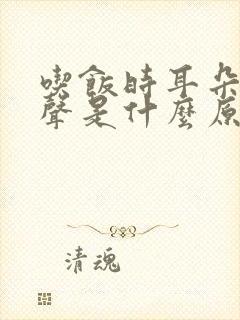 喫飯時耳朵
聲是什麼原
清魂